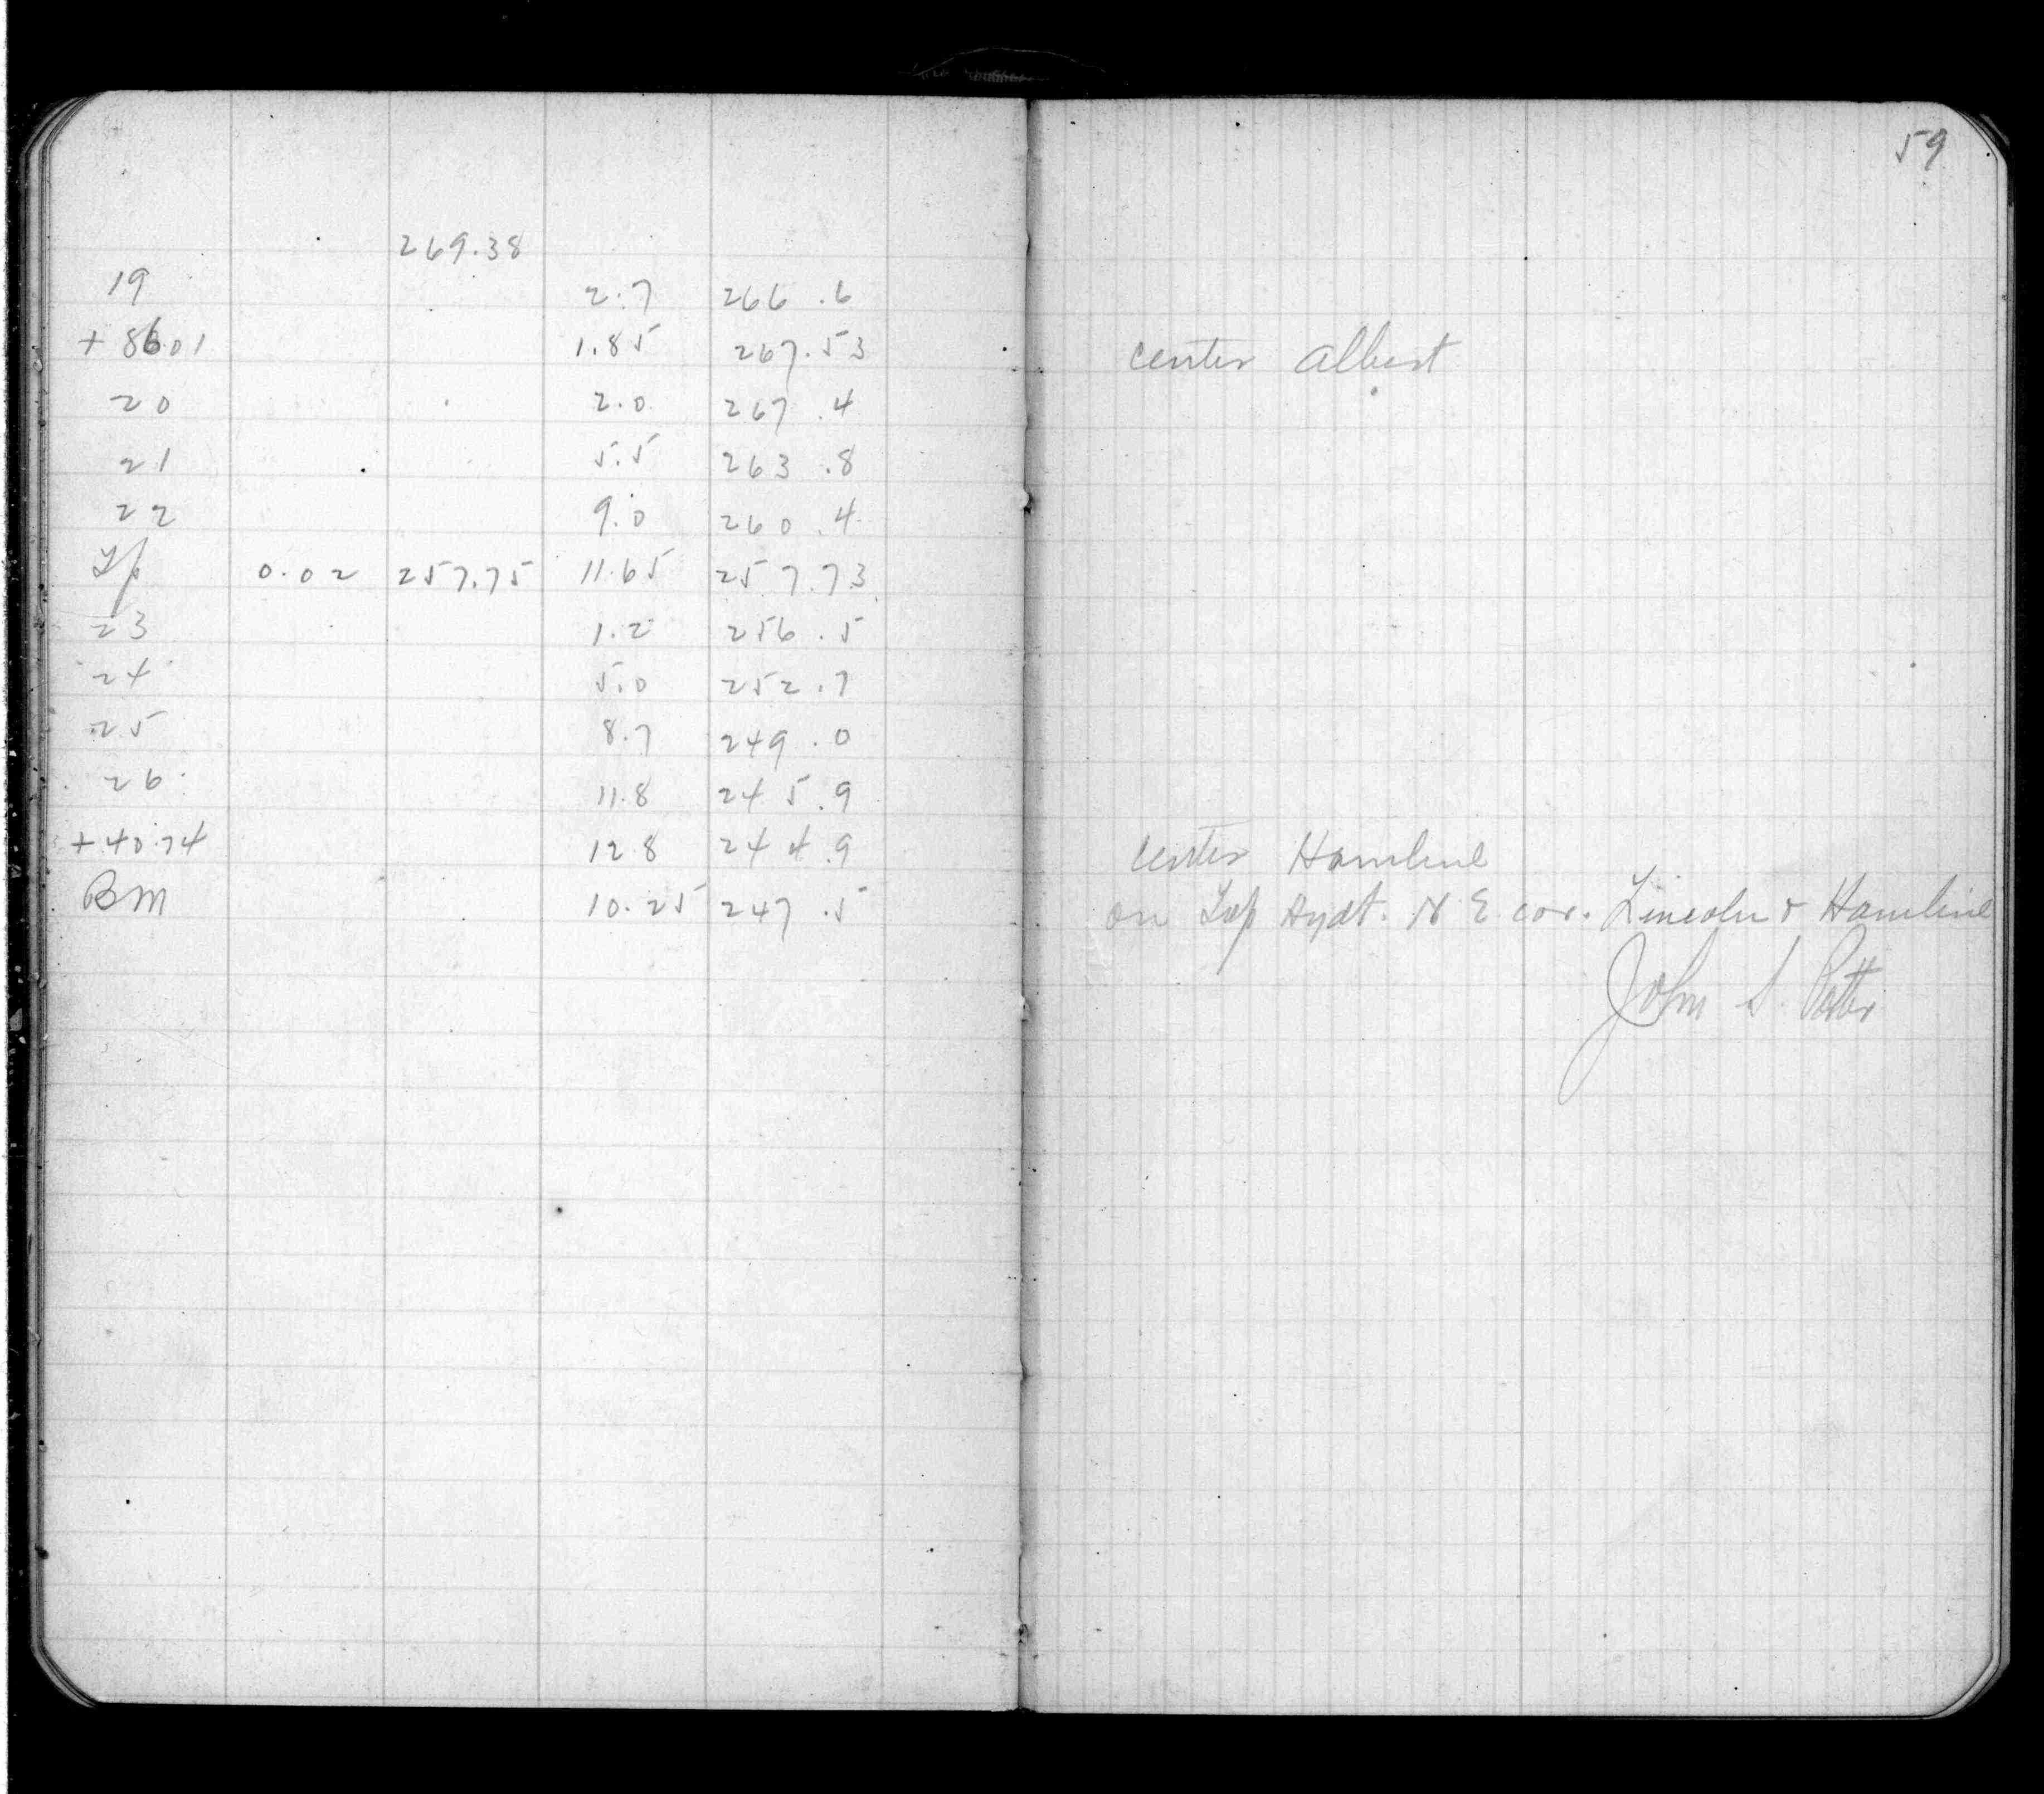 59
269.38
19 2.7 266.6
+ 86.01 1.85 267.53 center Albert
20 2.0 267.4
21 5.5 263.8
22 9.0 260.4
Tp 0.02 257.75 11.65 257.73
23 1.2 256.5
24 5.0 252.7
25 8.7 249.0
26 11.8 245.9
+ 40.74 12.8 244.9 center Hamline
BM 10.25 247.5 on Top Hydt. N E cor. Lincoln & Hamline
John S. Potter